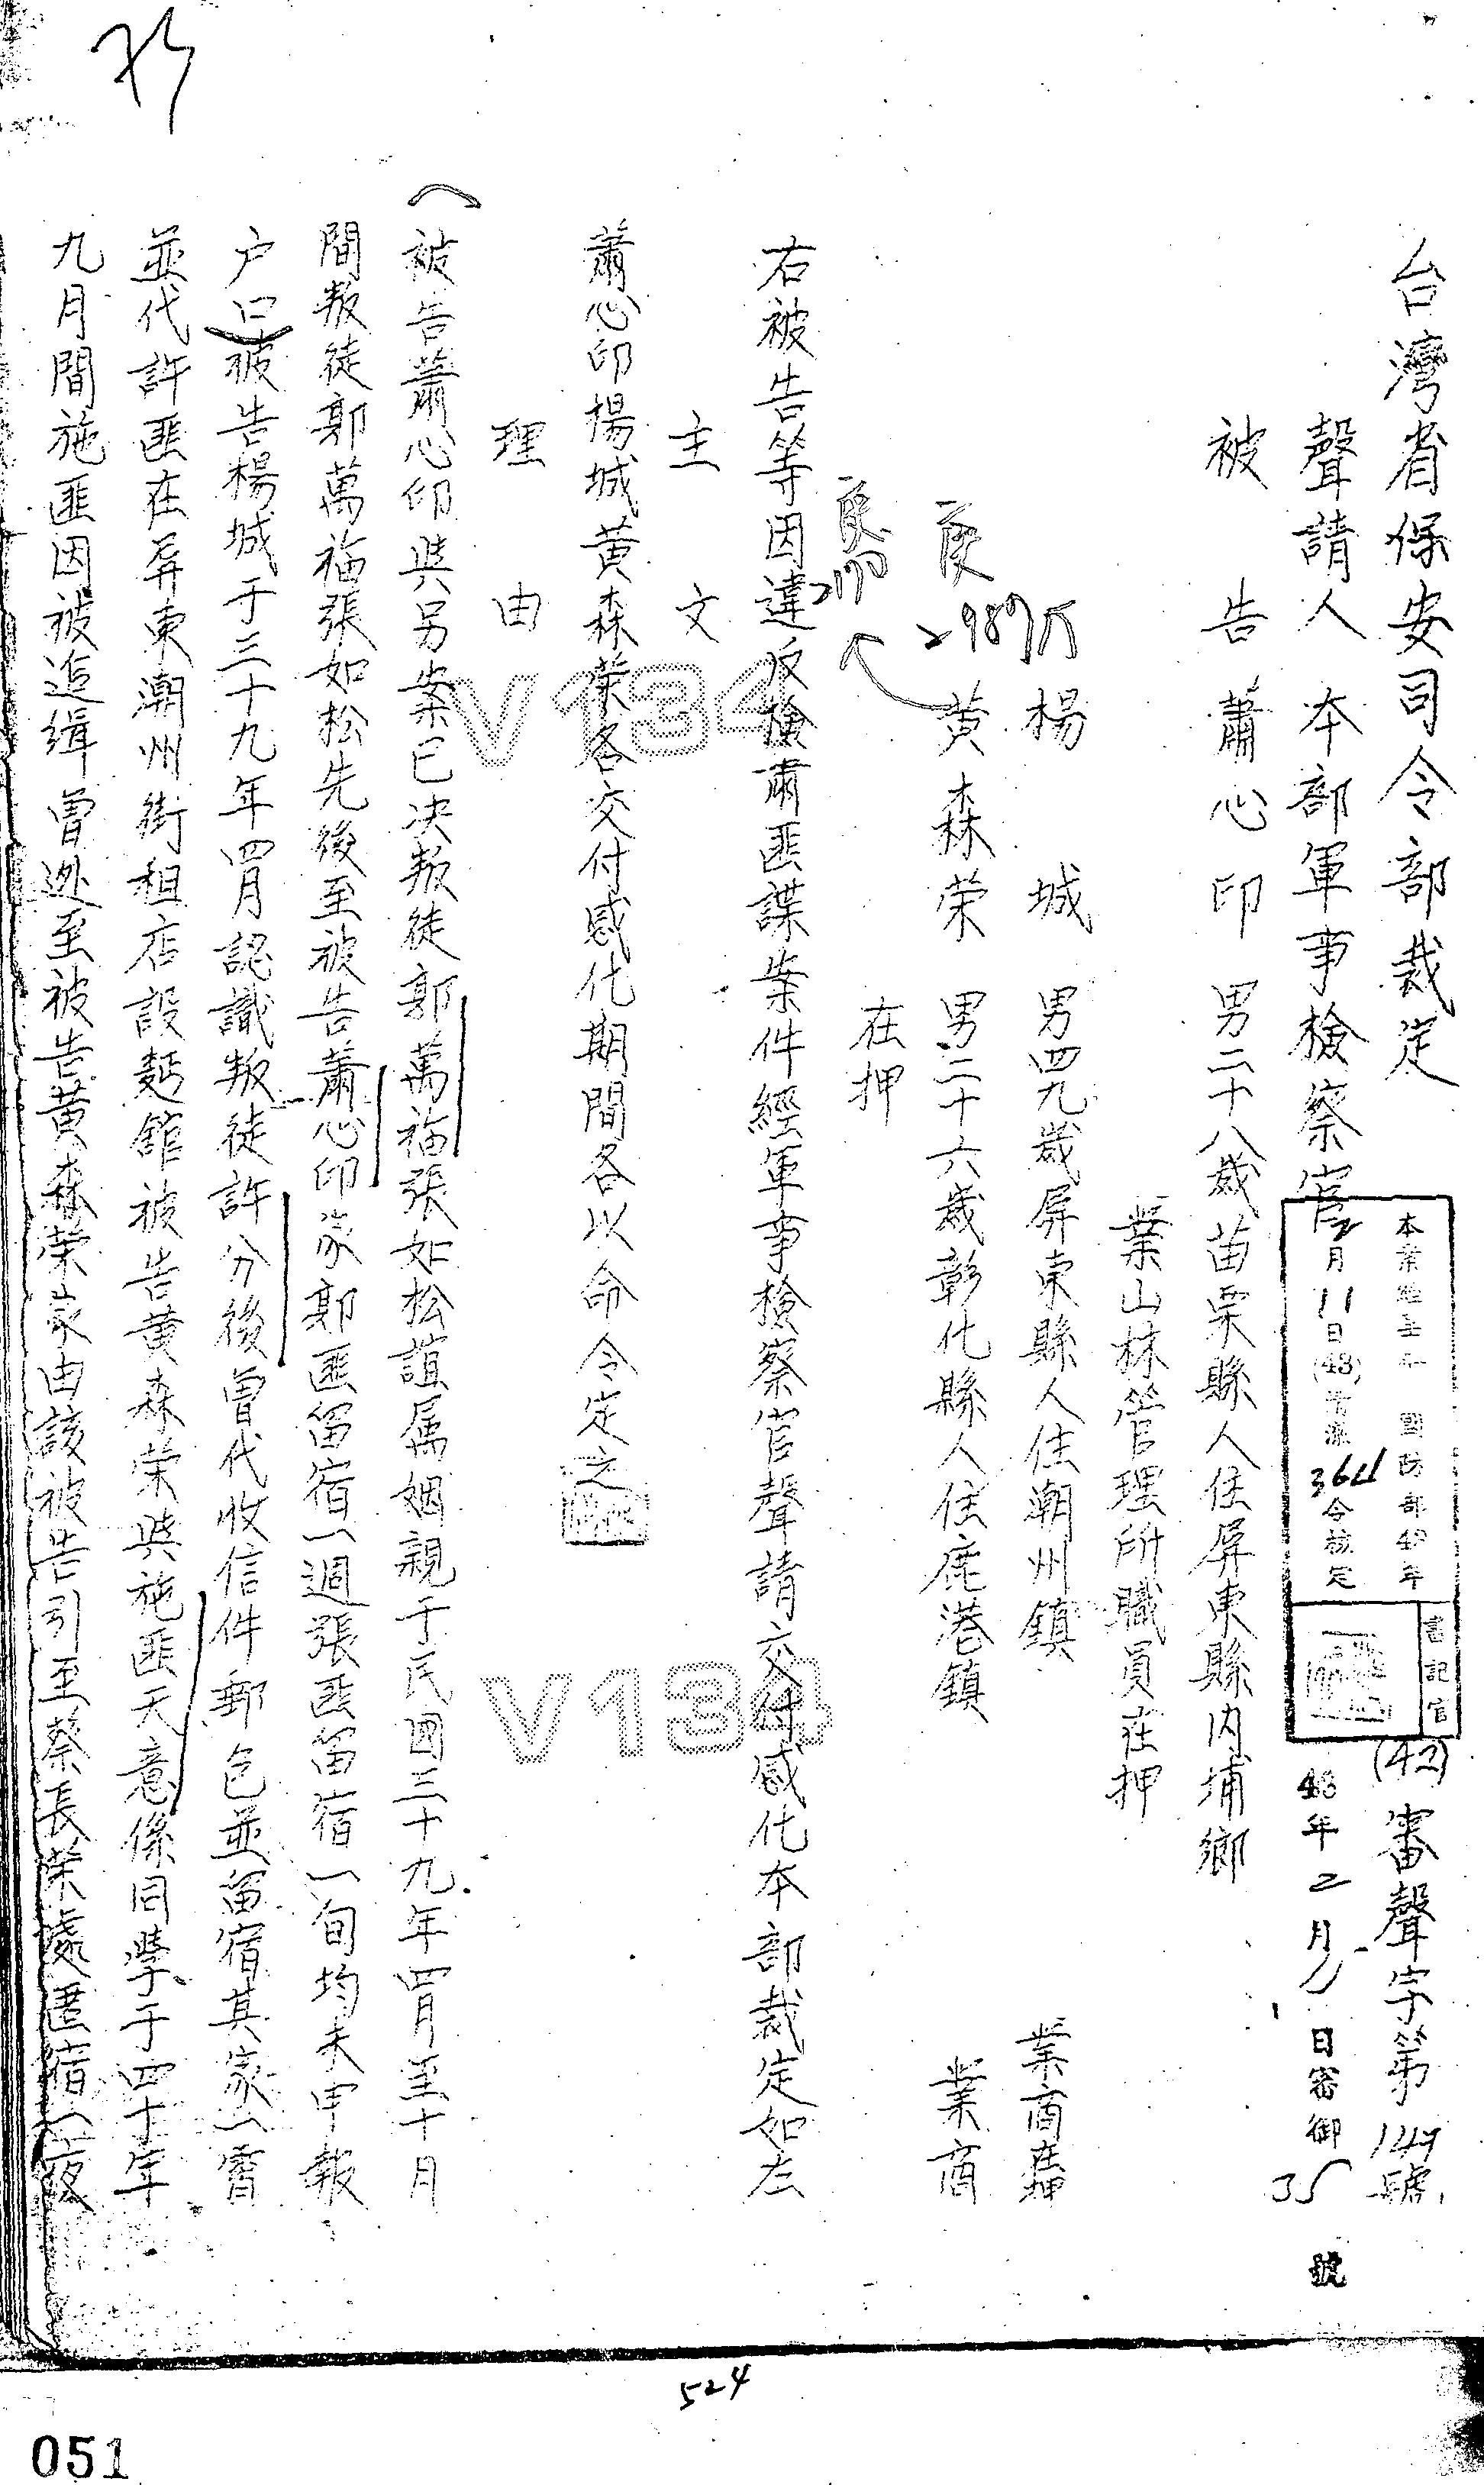 台灣省保安司令部裁定
(42)審聲字第147號
聲請人 本部軍事檢察官
被告 蕭心印 男二十八歲苗栗縣人住屏東縣內埔鄉
業山林管理所職員在押
楊城 男四九歲屏東縣人住潮州鎮 業商在押
黃森荣 男二十六歲彰化縣人住鹿港鎮 業商
在押
右被告等因違反檢肅匪諜案件經軍事檢察官聲請交付感化本部裁定如左
主文
蕭心印楊城黃森荣各交付感化期間各以命令定之
理由
被告蕭心印與另案已决叛徒郭萬福張如松誼属姻親于民國三十九年四月至十月
間叛徒郭萬福張如松先後至被告蕭心印家郭匪留宿一週張匪留宿一旬均未申報
户口被告楊城于三十九年四月認識叛徒許分後曾代收信件郵包並留宿其家一宵
並代許匪在屏東潮州街租店設麫館被告黄森荣與施匪天意係同學于四十年
九月間施匪因被追緝曾逃至被告黄森荣家由該被告引至蔡長荣處匿宿一夜
本案經呈 國防部43年
2月11日(43)
364令核定
書記官
43年2月 日審御35號
2987
V134
V134
524
051